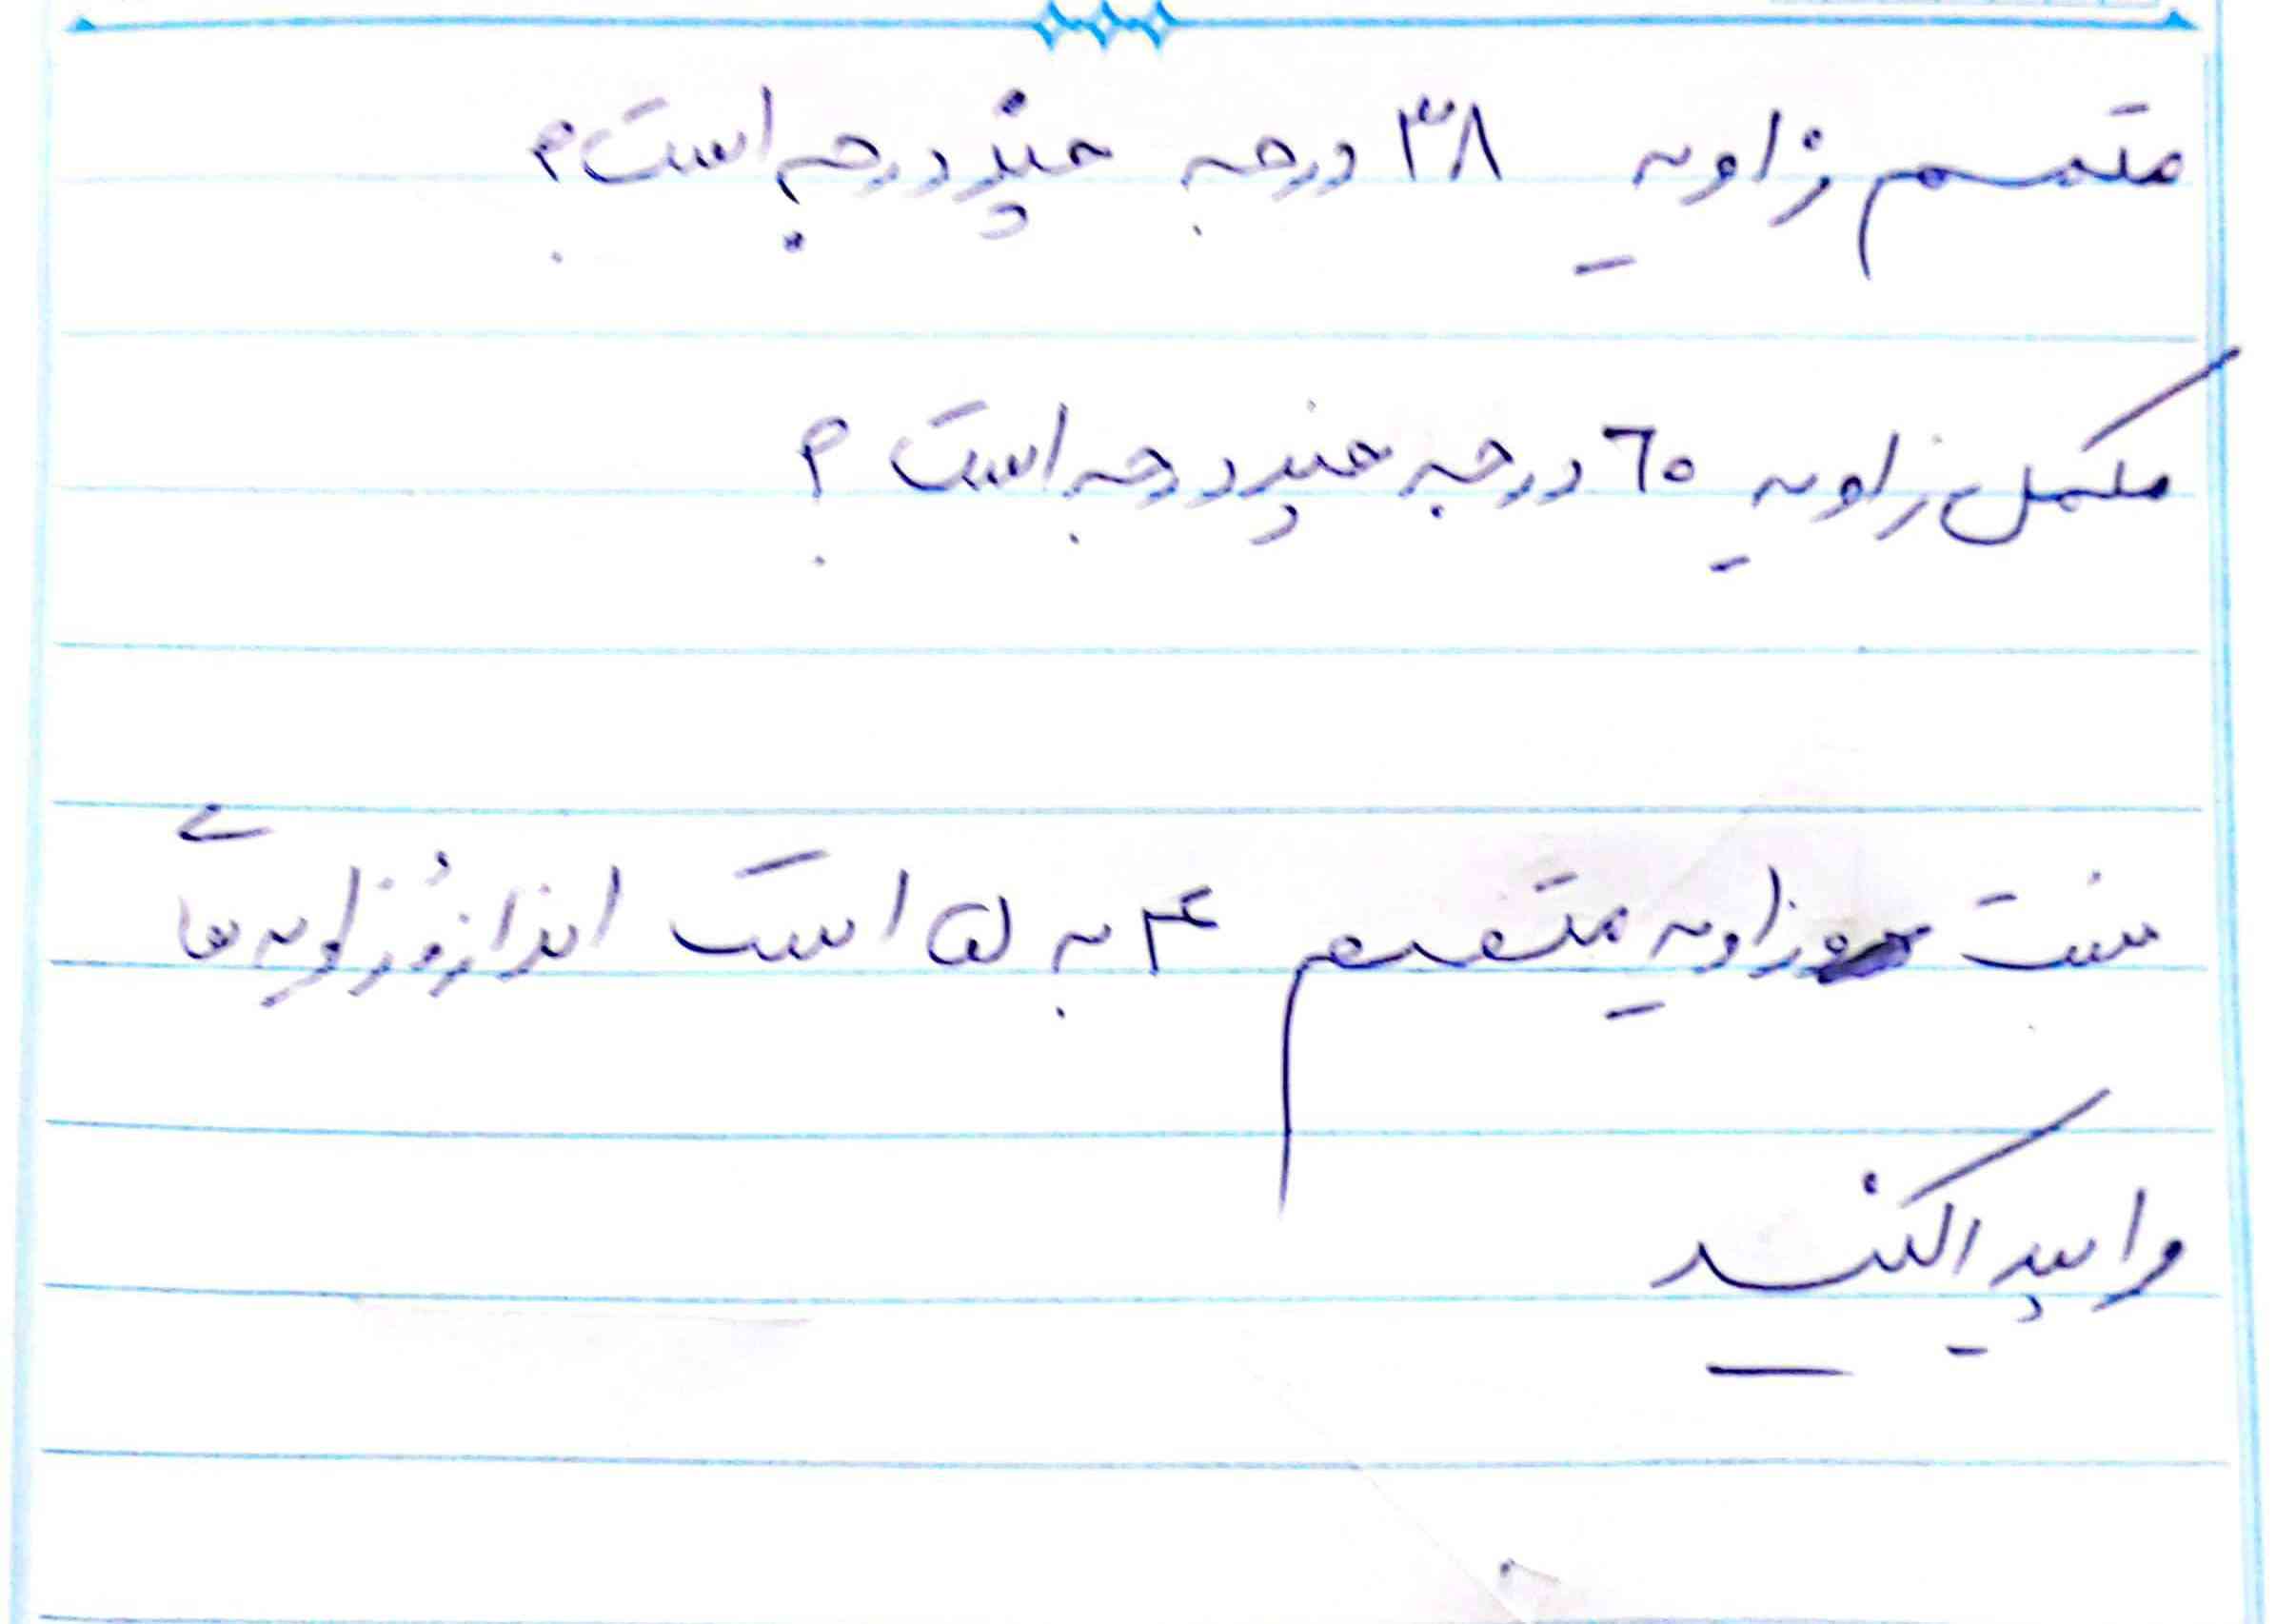 متمم زاویه ۳۸ درجه چند درجه است؟
مکمل زاویه ۶۰ درجه چند درجه است؟
نسبت دو زاویه متمم ۴ به ۵ است اندازهٔ زاویه‌ها
را پیدا کنید